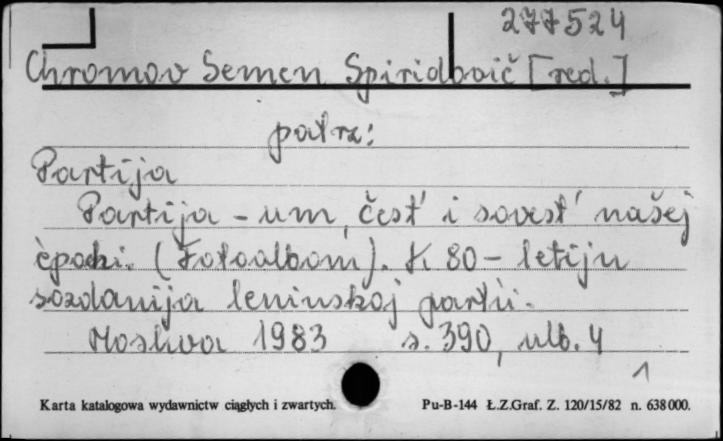 277524
Chromov Semen Spiridovič [red.]
patrz:
Partija
Partija - um, čest' i sovest' našej
èpochi. (Fotoalbom). K 80-letiju
sozdanija leninskoj partii.
Moskva 1983 s. 390, ulb. 4
1
Karta katalogowa wydawnictw ciągłych i zwartych. Pu-B-144 Ł.Z.Graf. Z. 120/15/82 n. 638000.